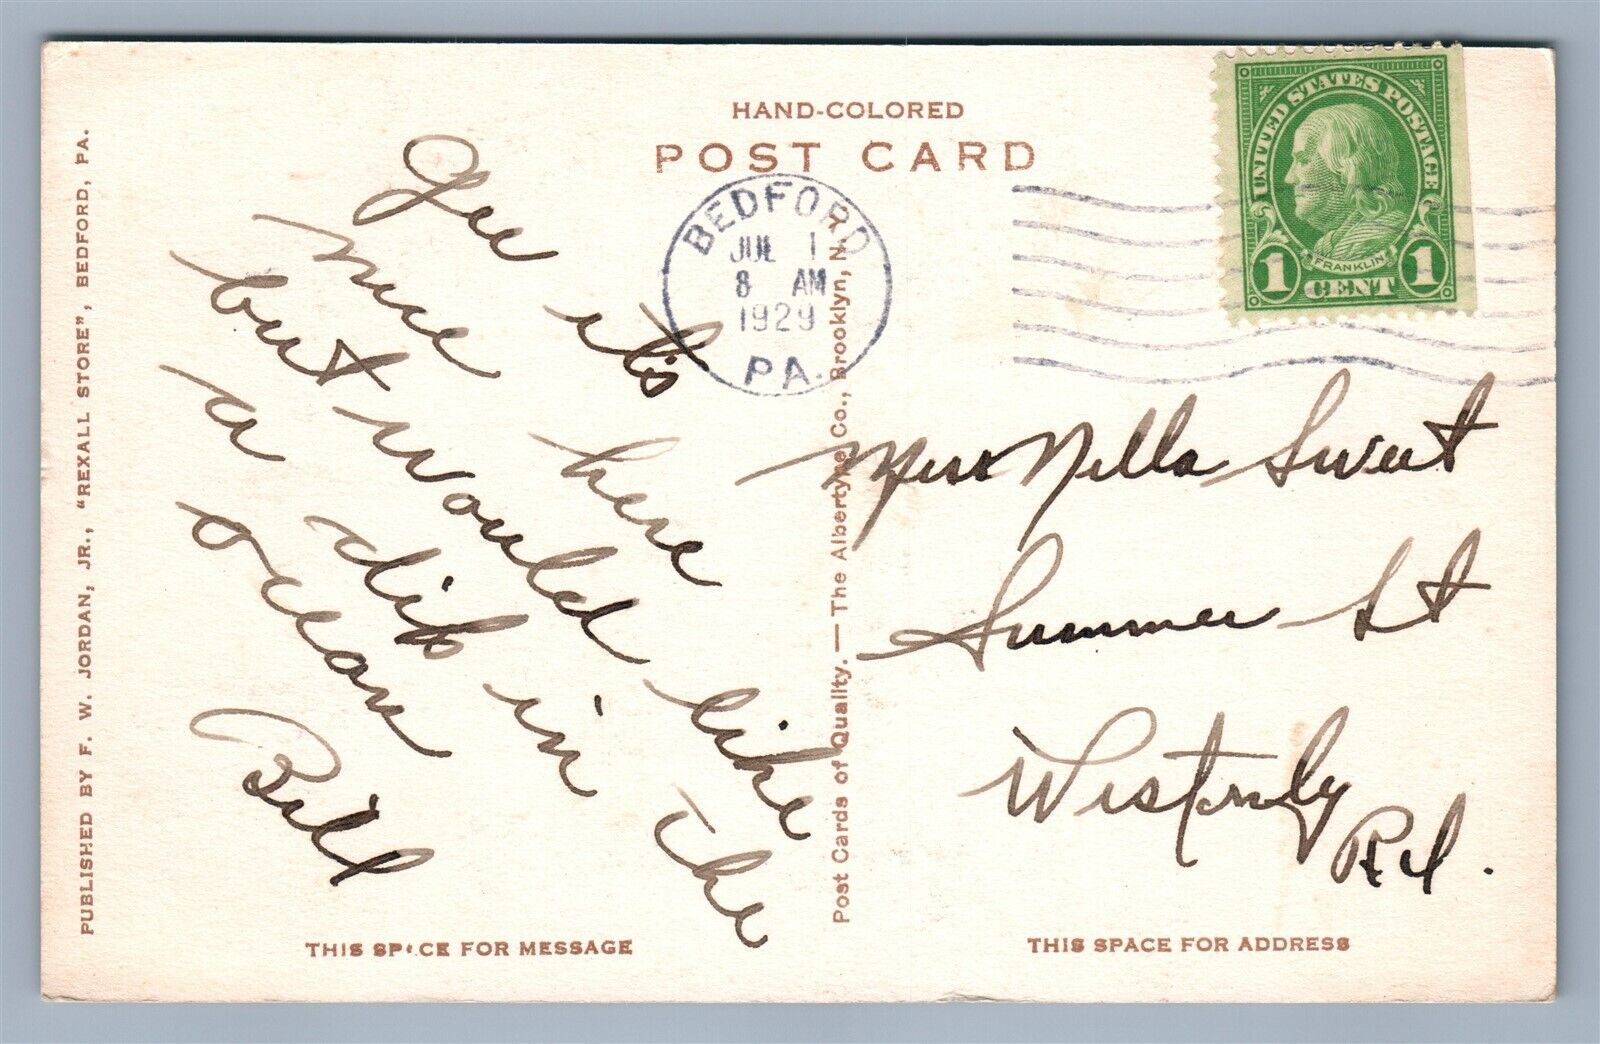 HAND-COLORED
POST CARD
UNITED STATES POSTAGE
FRANKLIN
1 CENT 1
BEDFORD
JUL 1
8 AM
1929
PA.
Gee it's
nice here
but would like
a dip in the
ocean
Bill
Miss Nella Sweet
Summer St
Westerly
R.I.
PUBLISHED BY F. W. JORDAN, JR., "REXALL STORE", BEDFORD, PA.
Post Cards of Quality. — The Albertype Co., Brooklyn, N.
THIS SPACE FOR MESSAGE
THIS SPACE FOR ADDRESS